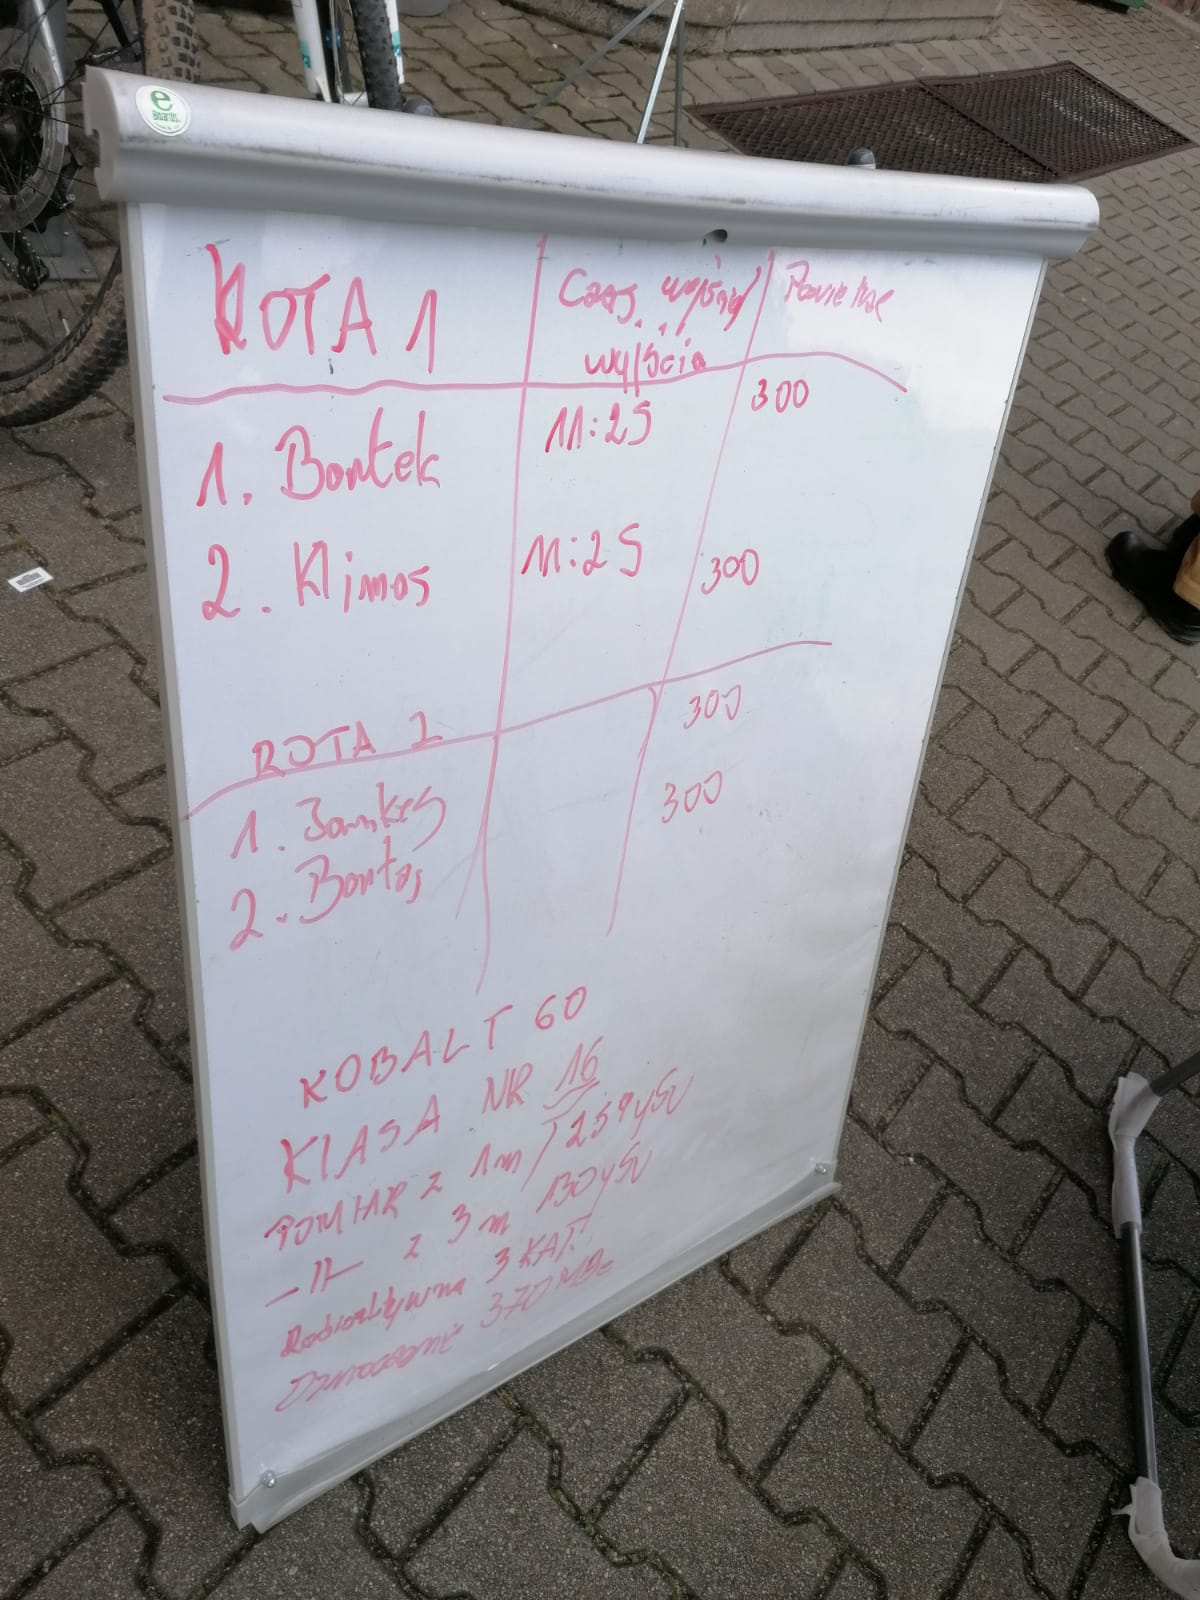 e
Boards
ROTA 1 Czas wejścia/ Powietrze
wyjścia
1. Bartek 11:25 300
2. Klimas 11:25 300
ROTA 2 300
1. 300
2. Bartas
KOBALT 60
KLASA NR 16
POMIAR z 1m / 259 µSv
-||- z 3m 130 µSv
Radioaktywna 3 KAT.
370 MBq